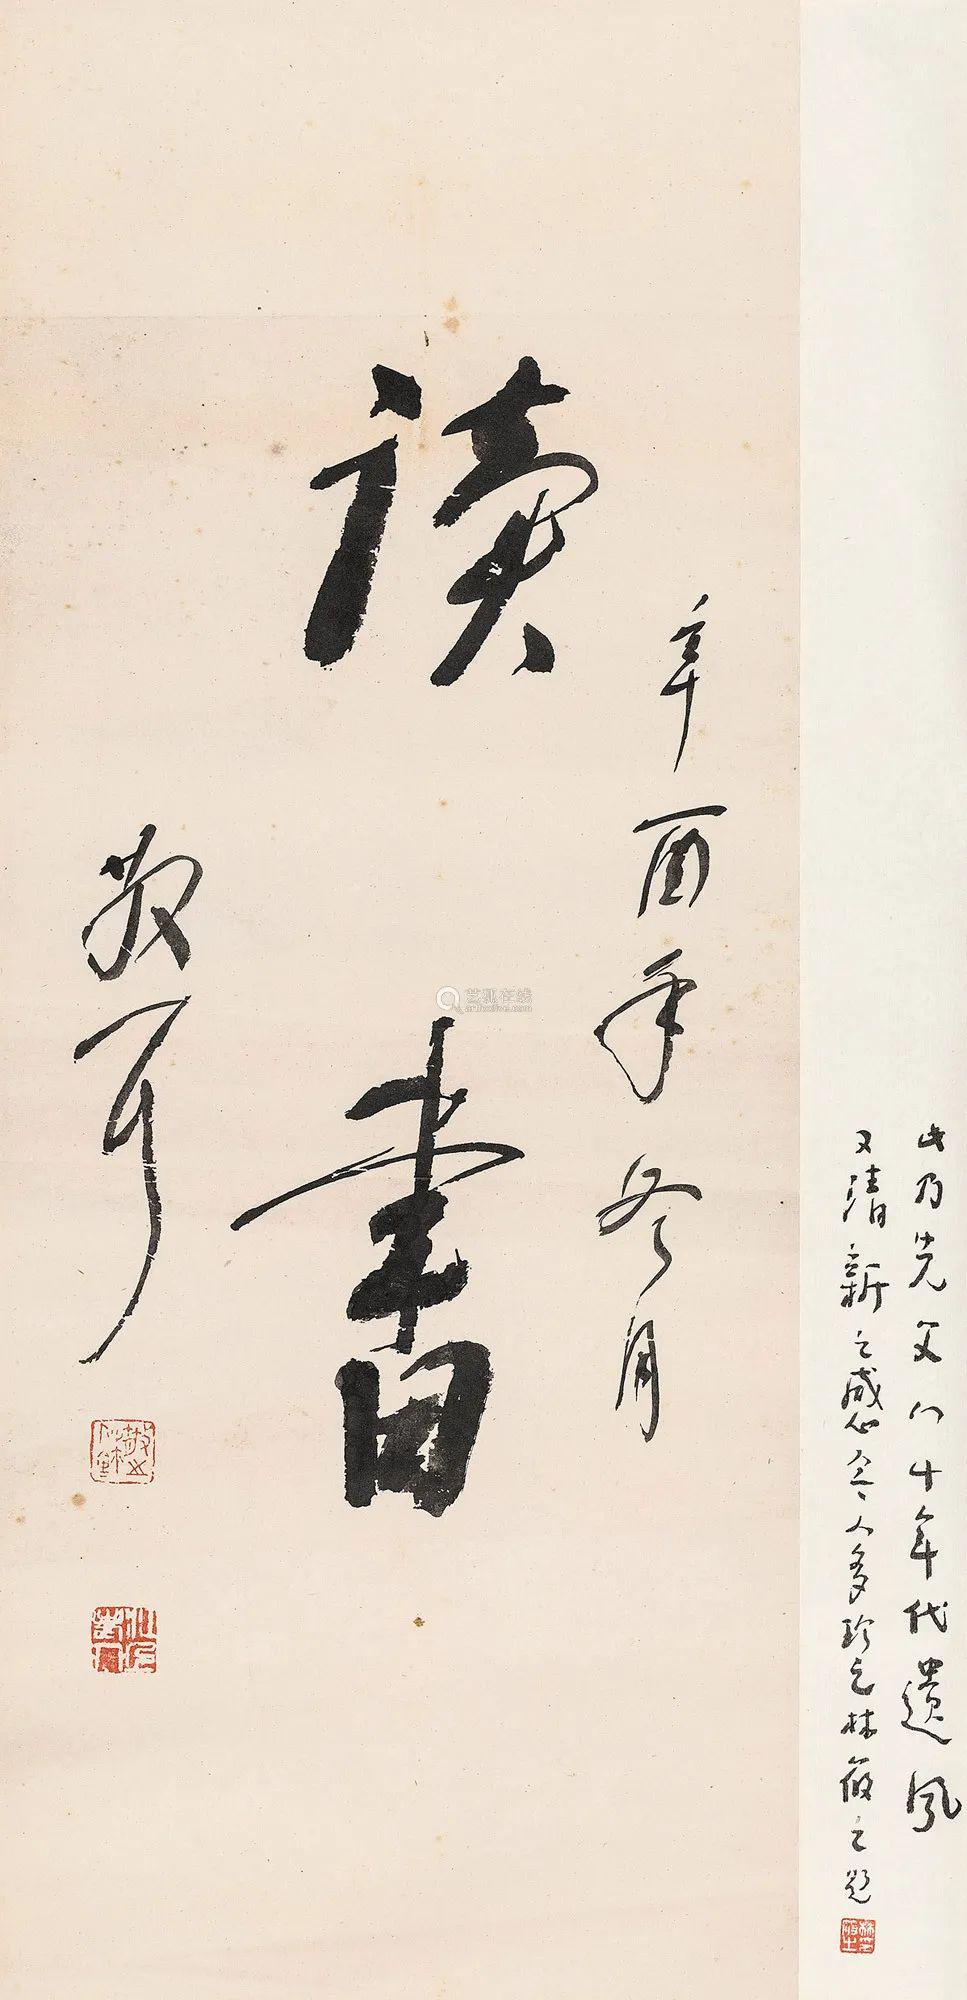 此乃先父八十年代遺風
又清新之感令人多珍之林筱之題
辛酉年冬月
讀書
散耳
艺狐在线
artfoxlive.com